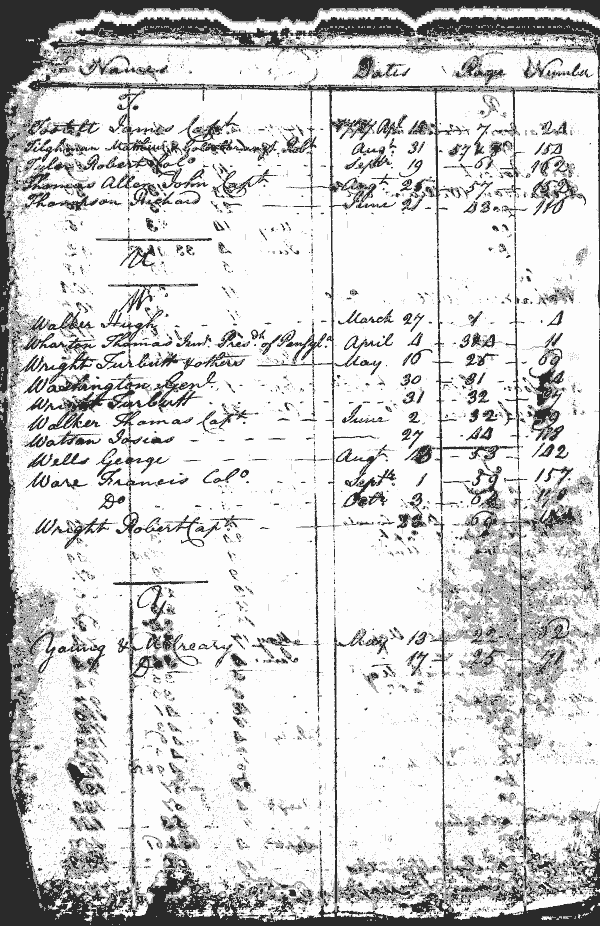 Names Dates Page Number
T.
James Capt. 15 7 24
Augt. 31 154
Tyler Robert Colo. Septr. 19 61 162
Thomas Allen John Capt. Augt. 57 152
Thompson Richard June 21 43 110
U
W.
Walker Hugh March 27 1 4
Wharton Thomas Junr. Presdt. of Pensylva. April 4 11
Wright Turbutt & others May 16 28 69
Washington Genl. 30 31
Wright Turbutt 31 32
Walker Thomas Capt. June 2 32
Watson Josias 27 44 118
Wells George Augt. 53 142
Ware Francis Colo. Septr. 1 59 157
Do. Octr. 3 64
Wright Robert Capt. 69
Y
Young & McCreary May 13 22 52
Do. 17 25 61